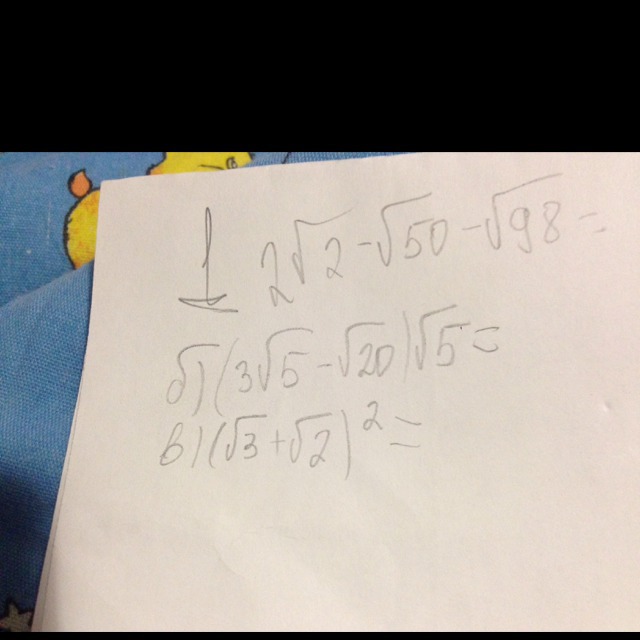 1 2√2 - √50 - √98 =
б) (3√5 - √20)√5 =
в) (√3 + √2)² =